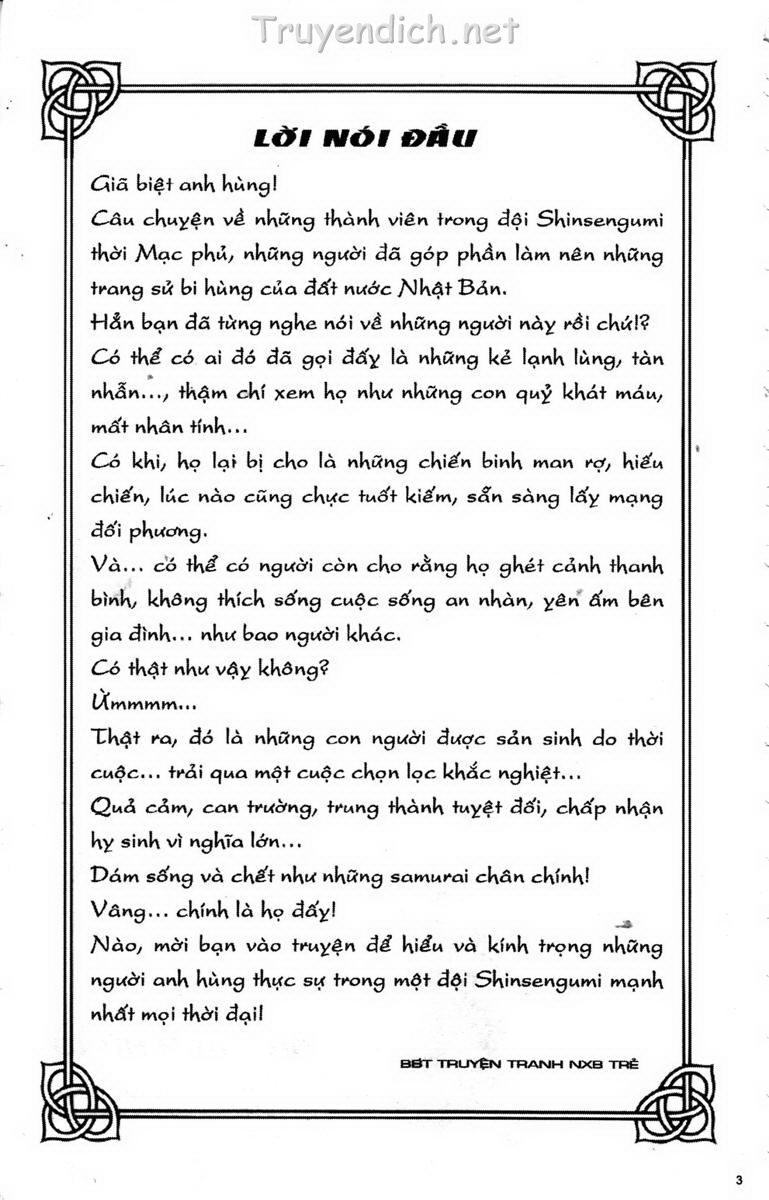 Truyendich.net
LỜI NÓI ĐẦU
Giã biệt anh hùng!
Câu chuyện về những thành viên trong đội Shinsengumi
thời Mạc phủ, những người đã góp phần làm nên những
trang sử bi hùng của đất nước Nhật Bản.
Hẳn bạn đã từng nghe nói về những người này rồi chứ!?
Có thể có ai đó đã gọi đấy là những kẻ lạnh lùng, tàn
nhẫn..., thậm chí xem họ như những con quỷ khát máu,
mất nhân tính...
Có khi, họ lại bị cho là những chiến binh man rợ, hiếu
chiến, lúc nào cũng chực tuốt kiếm, sẵn sàng lấy mạng
đối phương.
Và... có thể có người còn cho rằng họ ghét cảnh thanh
bình, không thích sống cuộc sống an nhàn, yên ấm bên
gia đình... như bao người khác.
Có thật như vậy không?
Ừmmmm...
Thật ra, đó là những con người được sản sinh do thời
cuộc... trải qua một cuộc chọn lọc khắc nghiệt...
Quả cảm, can trường, trung thành tuyệt đối, chấp nhận
hy sinh vì nghĩa lớn...
Dám sống và chết như những samurai chân chính!
Vâng... chính là họ đấy!
Nào, mời bạn vào truyện để hiểu và kính trọng những
người anh hùng thực sự trong một đội Shinsengumi mạnh
nhất mọi thời đại!
BBT TRUYỆN TRANH NXB TRẺ
3